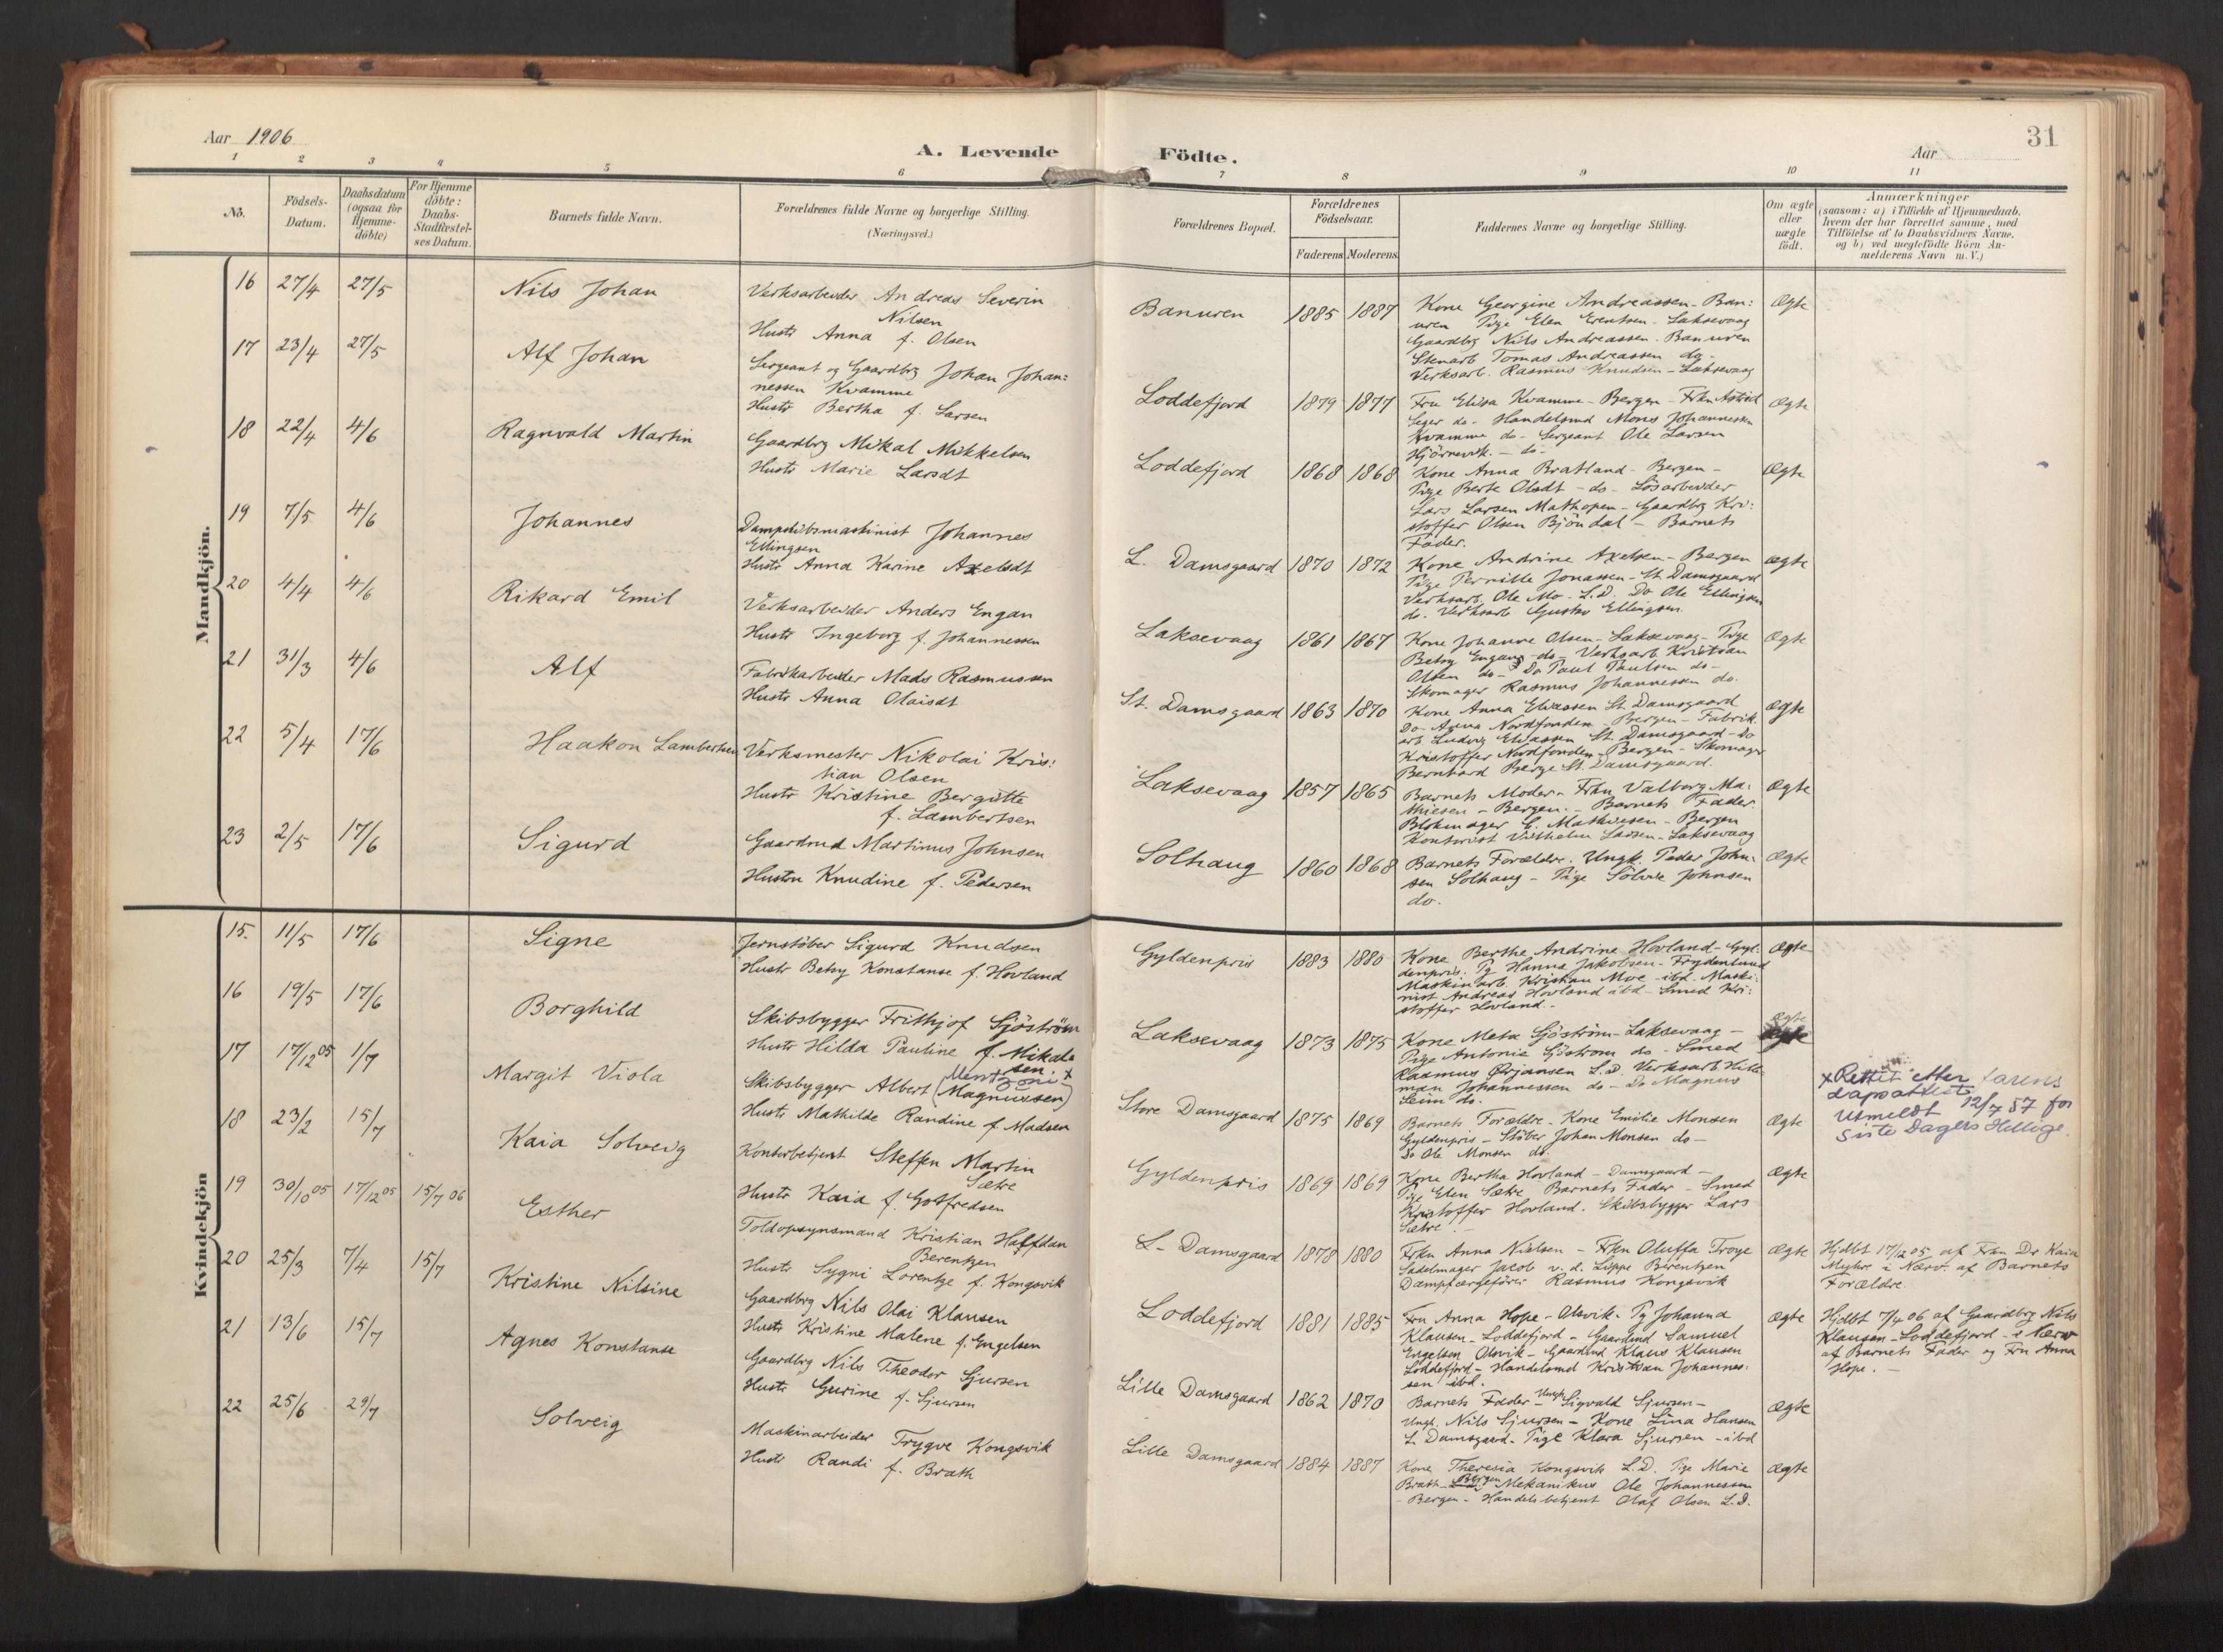 Aar 1906
A. Levende
Födte.
Aar
31
1 2 3 4 5 6 7 8 9 10 11
No.
Födsels-
Datum.
Daabsdatum
(ogsaa for
Hjemme-
döbte)
For Hjemme
döbte:
Daabs-
Stadfæstel-
ses Datum.
Barnets fulde Navn.
Forældrenes fulde Navne og borgerlige Stilling.
(Næringsvei.)
Forældrenes Bopæl.
Forældrenes
Födselsaar.
Faderens Moderens
Faddernes Navne og borgerlige Stilling.
Om ægte
eller
uægte
födt.
Anmærkninger
(saasom: a) i Tilfælde af Hjemmedaab,
hvem der har forrettet samme, med
Tilföielse af to Daabsvidners Navne.
og b) ved uegtefödte Börn An-
melderens Navn m. V.)
Mandkjön.
16 27/4 27/5 Nils Johan
Verksarbeider Andreas Severin
Nilsen
Hustr Anna f. Olsen
Banuren 1885 1887
Kone Georgine Andreassen - Ban:
uren Pige Elen Erentsen - Laksevaag
Gaardbrg Nils Andreassen - Banuren
Stenarb Tomas Andreassen do -
Verksarb. Rasmus Knudsen - Laksevaag
Ægte
17 23/4 27/5 Alf Johan
Sergeant og Gaardbrg Johan Johan:
nessen Kvamme
Hustr Bertha f. Larsen
Loddefjord 1879 1877
Fru Elisa Kvamme - Bergen - Frkn Astrid
Seger do - Handelsmd Mons Johannesen
Kvamme do - Sergeant Ole Larsen
Hjörnevik. - do -
Ægte
18 22/4 4/6 Ragnvald Martin
Gaardbrg Mikal Mikkelsen
Hustr Marie Larsdt
Loddefjord 1868 1868
Kone Anna Bratland - Bergen -
Pige Berte Olsdt - do - Lösarbeider
Lars Larsen Mathopen - Gaardbrg Kri:
stoffer Olsen Bjöndal - Barnets
Fader.
Ægte
19 7/5 4/6 Johannes
Dampskibsmaskinist Johannes
Ellingsen
Hustr Anna Karine Axelsdt
L. Damsgaard 1870 1872
Kone Andrine Axelsen - Bergen
Pige Pernille Jonassen - St. Damsgaard
Verksarb. Ole Mo - L.D. Do Ole Ellingsen
do. Verksarb Gustav Ellingsen.
Ægte
20 4/4 4/6 Rikard Emil
Verksarbeider Anders Engan
Hustr Ingeborg f. Johannessen
Laksevaag 1861 1867
Kone Johanne Olsen - Laksevaag - Pige
Betsy Engan - do - Verksarb Kristian
Olsen do - Do Paul Paulsen do -
Skomager Rasmus Johannessen do.
Ægte
21 31/3 4/6 Alf
Fabrikarbeider Mads Rasmussen
Hustr Anna Olaisdt
St. Damsgaard 1863 1870
Kone Anna Eliassen St. Damsgaard
Do - Anna Nordfonden - Bergen - Fabrik
arb Ludvig Eliassen St. Damsgaard - Do
Kristoffer Nordfonden - Bergen - Skomager
Bernhard Berge St. Damsgaard.
Ægte
22 5/4 17/6 Haakon Lambertsen
Verksmester Nikolai Kris:
tian Olsen
Hustr Kristine Bergitte
f. Lambertsen
Laksevaag 1857 1865
Barnets Moder - Frkn Valborg Ma:
thiesen - Bergen. - Barnets Fader.
Blokmager E. Mathiesen - Bergen
Kontorist Vilhelm Larsen - Laksevaag
Ægte
23 2/5 17/6 Sigurd
Gaardmd Martinus Johnsen
Hustru Knudine f. Pedersen
Solhaug 1860 1868
Barnets Forældre. Ungk. Peder John:
sen Solhaug - Pige Solvei Johnsen
do.
Ægte
Kvindekjön
15. 11/5 17/6 Signe
Jernstöber Sigurd Knudsen
Hustr Betsy Konstanse f. Hovland
Gyldenpris 1883 1880
Kone Berthe Andrine Hovland - Gyl:
denpris. Pg Hanna Jakobsen - Frydenlund
Maskinarb Kristian Moe - ibd. Maski:
nist Andreas Hovland ibd - Smed Kri:
stoffer Hovland -
Ægte
16 19/5 17/6 Borghild
Skibsbygger Frithjof Sjöström
Hustr Hilda Pauline f. Mikal
sen. x
Laksevaag 1873 1875
Kone Meta Sjöström - Laksevaag -
Pige Antonie Sjöström do - Smed
Rasmus Ørjansen L.D. Verksarb Hille
man Johannessen do - Do Magnus
Seim do.
Ægte
17 17/12 05 1/7 Margit Viola
Mentzoni
Skibsbygger Albert (Magnussen)
Hustr Mathilde Randine f. Madsen
Store Damsgaard 1875 1869
Barnets Forældre - Kone Emilie Monsen
Gyldenpris - Stöber Johan Monsen do -
Do Ole Monsen do.
Ægte
x Rettet etter farens
dåpsattest
Utmeldt 12/7 57 for
Siste Dagers Hellige.
18 23/2 15/7 Kaia Solveig
Kontorbetjent Steffen Martin
Sætre
Hustr Kaia f. Gotfredsen
Gyldenpris 1869 1869
Kone Bertha Hovland - Damsgaard -
Pige Elen Sætre Barnets Fader - Smed
Kristoffer Hovland. Skibsbygger Lars
Sætre. -
Ægte
19 30/10 05 17/12 05 15/7 06 Esther
Toldopsynsmand Kristian Halfdan
Berentzen
Hustr Sygni Lorentze f. Kongsvik
L- Damsgaard 1878 1880
Frkn Anna Nielsen - Frkn Oluffa Troye
Sadelmager Jacob v. d. Lippe Berentzen
Dampfærgefører Rasmus Kongsvik
Ægte
Hjdbt 17/12 05 af Frkn Dr Kaia
Myhre i Nærv. af Barnets
Forældre.
20 25/3 7/4 15/7 Kristine Nilsine
Gaardbrg Nils Olai Klausen
Hustr Kristine Malene f. Engelsen
Loddefjord 1881 1885
Fru Anna Hope - Olsvik - Pg Johanna
Klausen - Loddefjord - Gaardmd Samuel
Engelsen Olsvik - Gaardmd Klaus Klausen
Loddefjord - Handelsmd Kristian Johannes:
sen ibd.
Ægte
Hjdbt 7/4 06 af Gaardbrg Nils
Klausen - Loddefjord - i Nærv
af Barnets Fader og Fru Anna
Hope. -
21 13/6 15/7 Agnes Konstanse
Gaardbrg Nils Theodor Sjursen
Hustr Gurine f. Sjursen
Lille Damsgaard 1862 1870
Barnets Fader - Ungk Sigvald Sjursen -
Ungk. Nils Sjursen - Kone Lina Hansen
L Damsgaard - Pige Klara Sjursen - ibd
Ægte
22 25/6 29/7 Solveig
Maskinarbeider Trygve Kongsvik
Hustr Randi f. Brath
Lille Damsgaard 1884 1887
Kone Theresia Kongsvik L.D. Pige Marie
Brath - Bergen Mekanikus Ole Johannessen
- Bergen - Handelsbetjent Olaf Olsen L.D.
Ægte